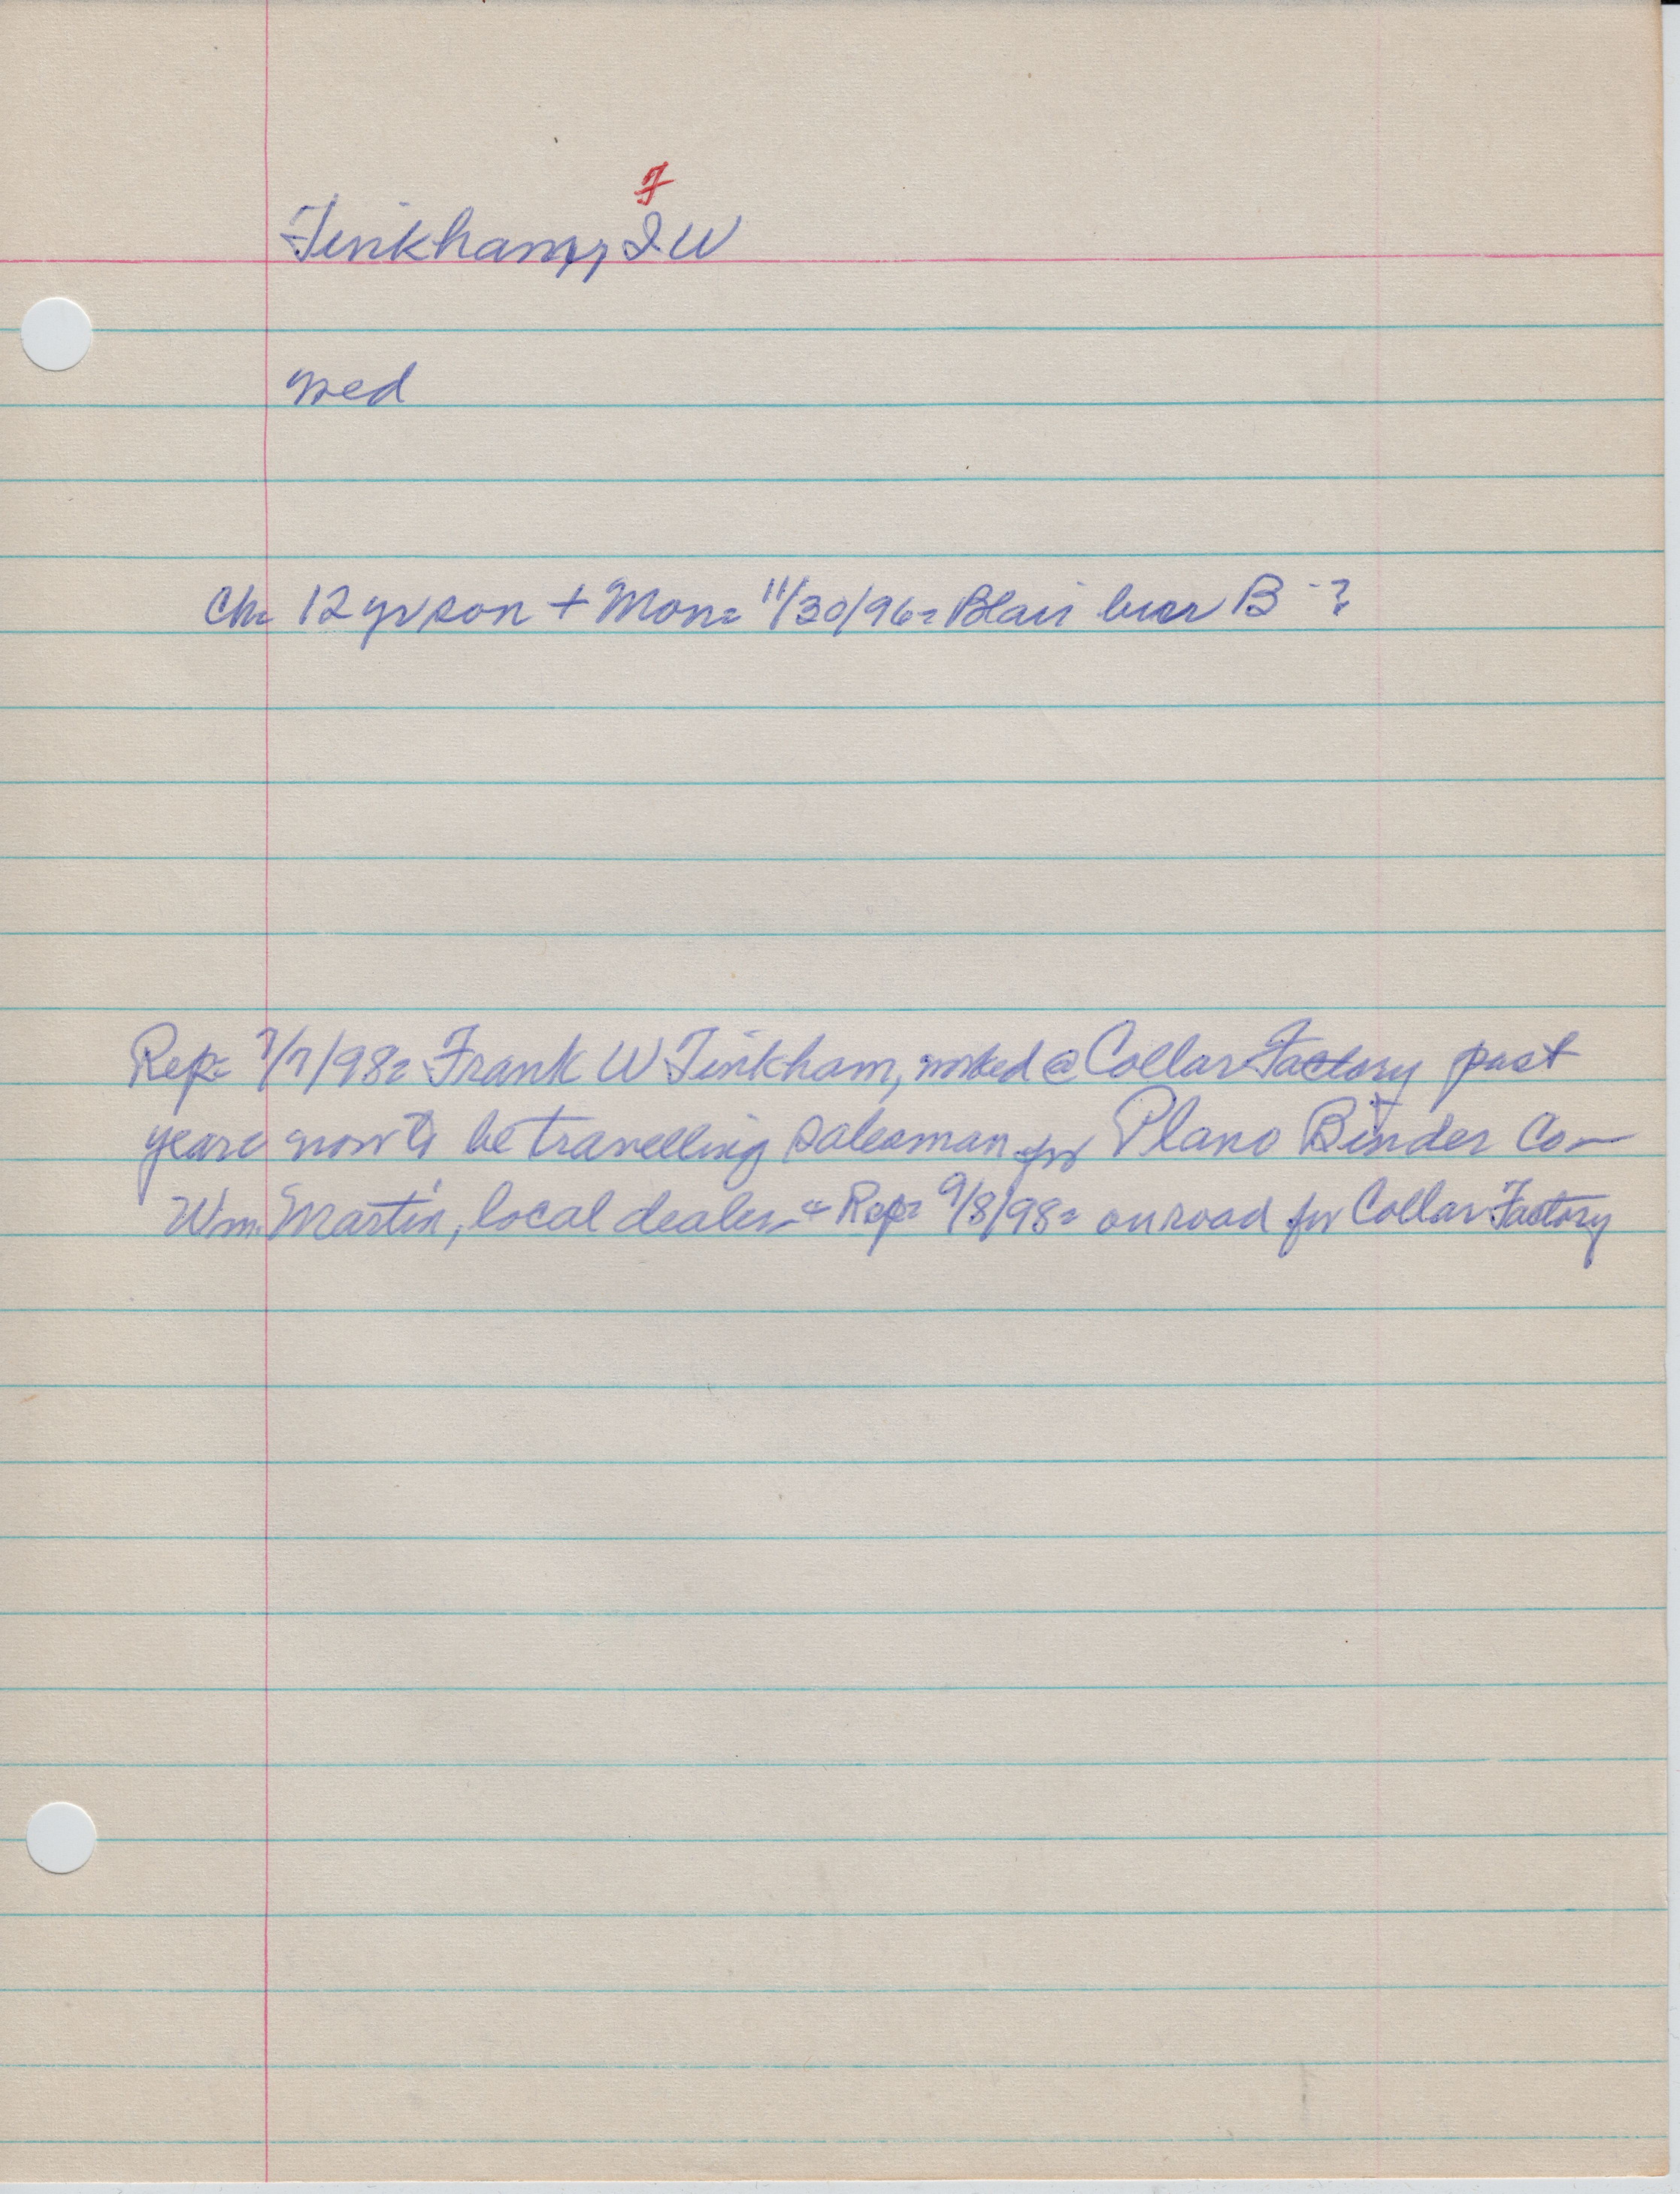 F
Tinkham, I W
med
Ch= 12 yr son + Mon= 11/30/96= Blair bur B - ?
Rep= 7/7/98= Frank W Tinkham, worked @ Collar Factory past
years now to be travelling salesman for Plano Binder Co—
Wm. Martin, local dealer " Rep= 9/8/98= on road for Collar Factory